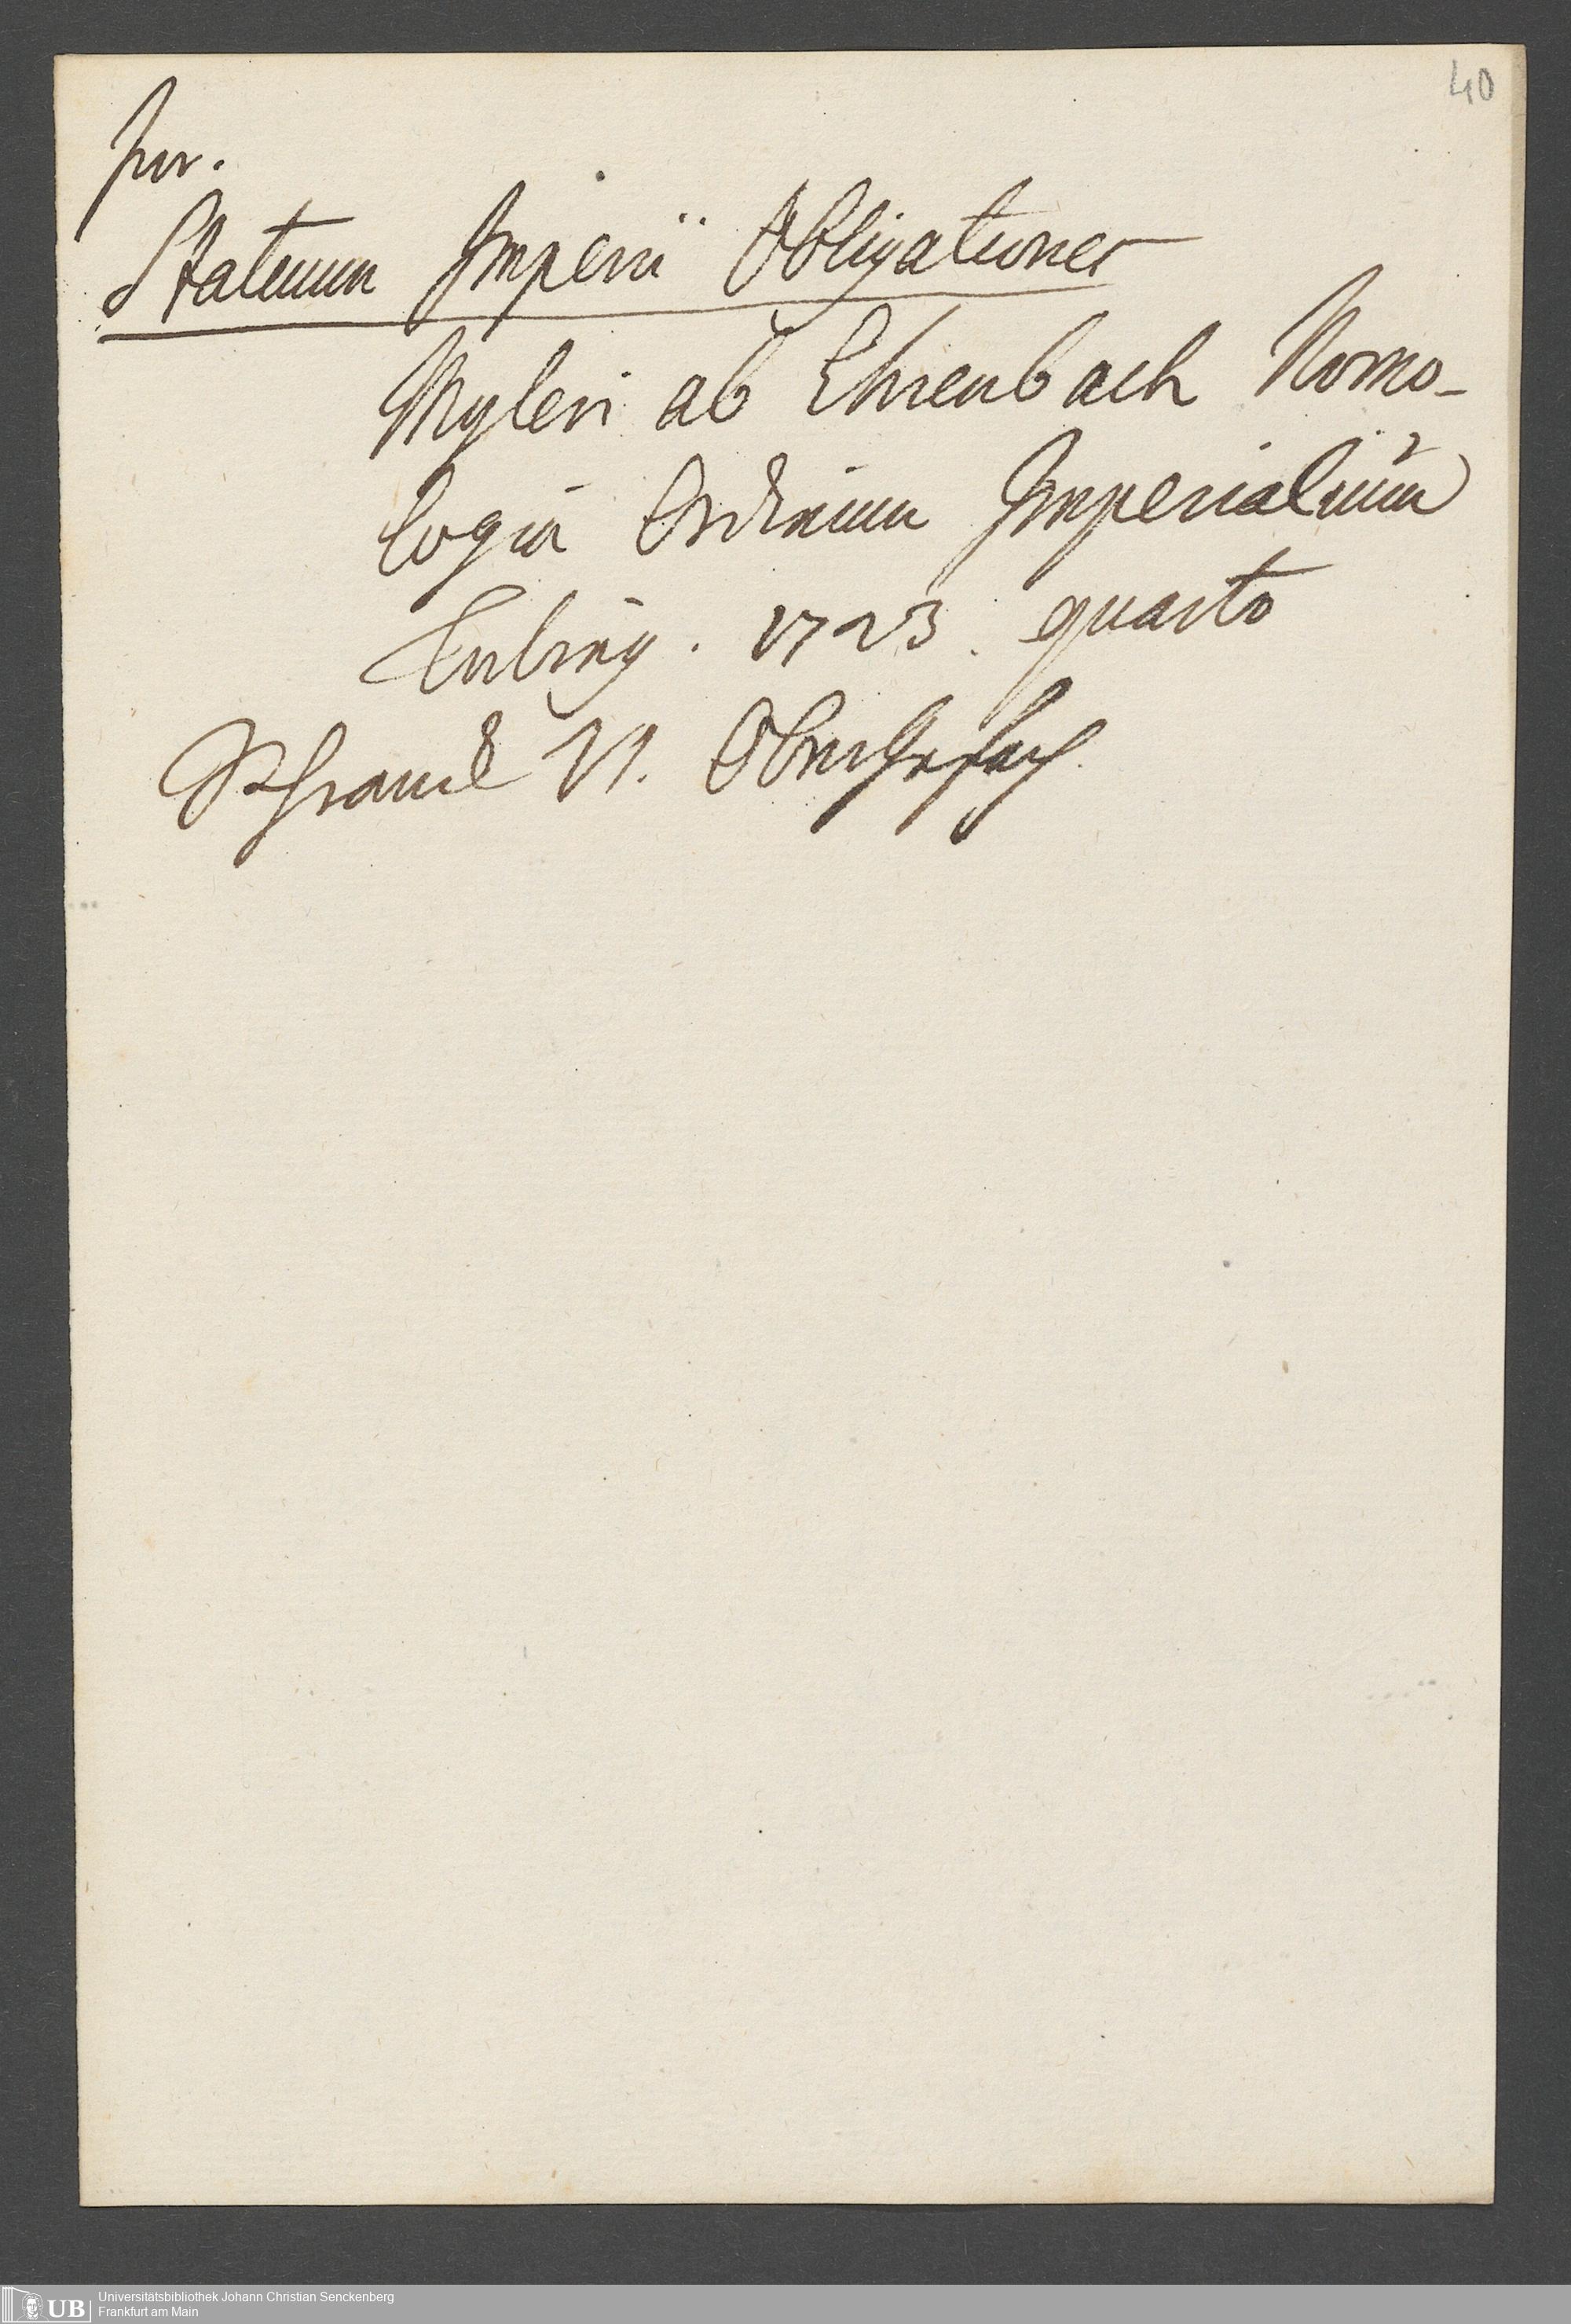 40
Jur.
Statuum Imperii Obligationes
Myleri ab Ehrenbach Nomo-
logia Ordinum Imperialium
Tubing. 1723. quarto
Schranck VI. Oberstes Fach.
UB Universitätsbibliothek Johann Christian Senckenberg
Frankfurt am Main